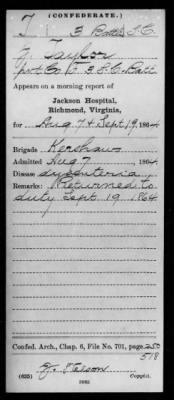 (CONFEDERATE.)
T 3 Batt S.C.
Taylor
Pvt Co. 3 S.C. Batt
Appears on a morning report of
Jackson Hospital,
Richmond, Virginia,
for Aug. 7 & Sept. 19, 1864
Brigade Kershaw
Admitted Aug 7, 1864
Disease dysenteria
Remarks: Returned to
duty Sept 19 1864
Confed. Arch., Chap. 6, File No. 701, page 250
518
(635) Copyist.